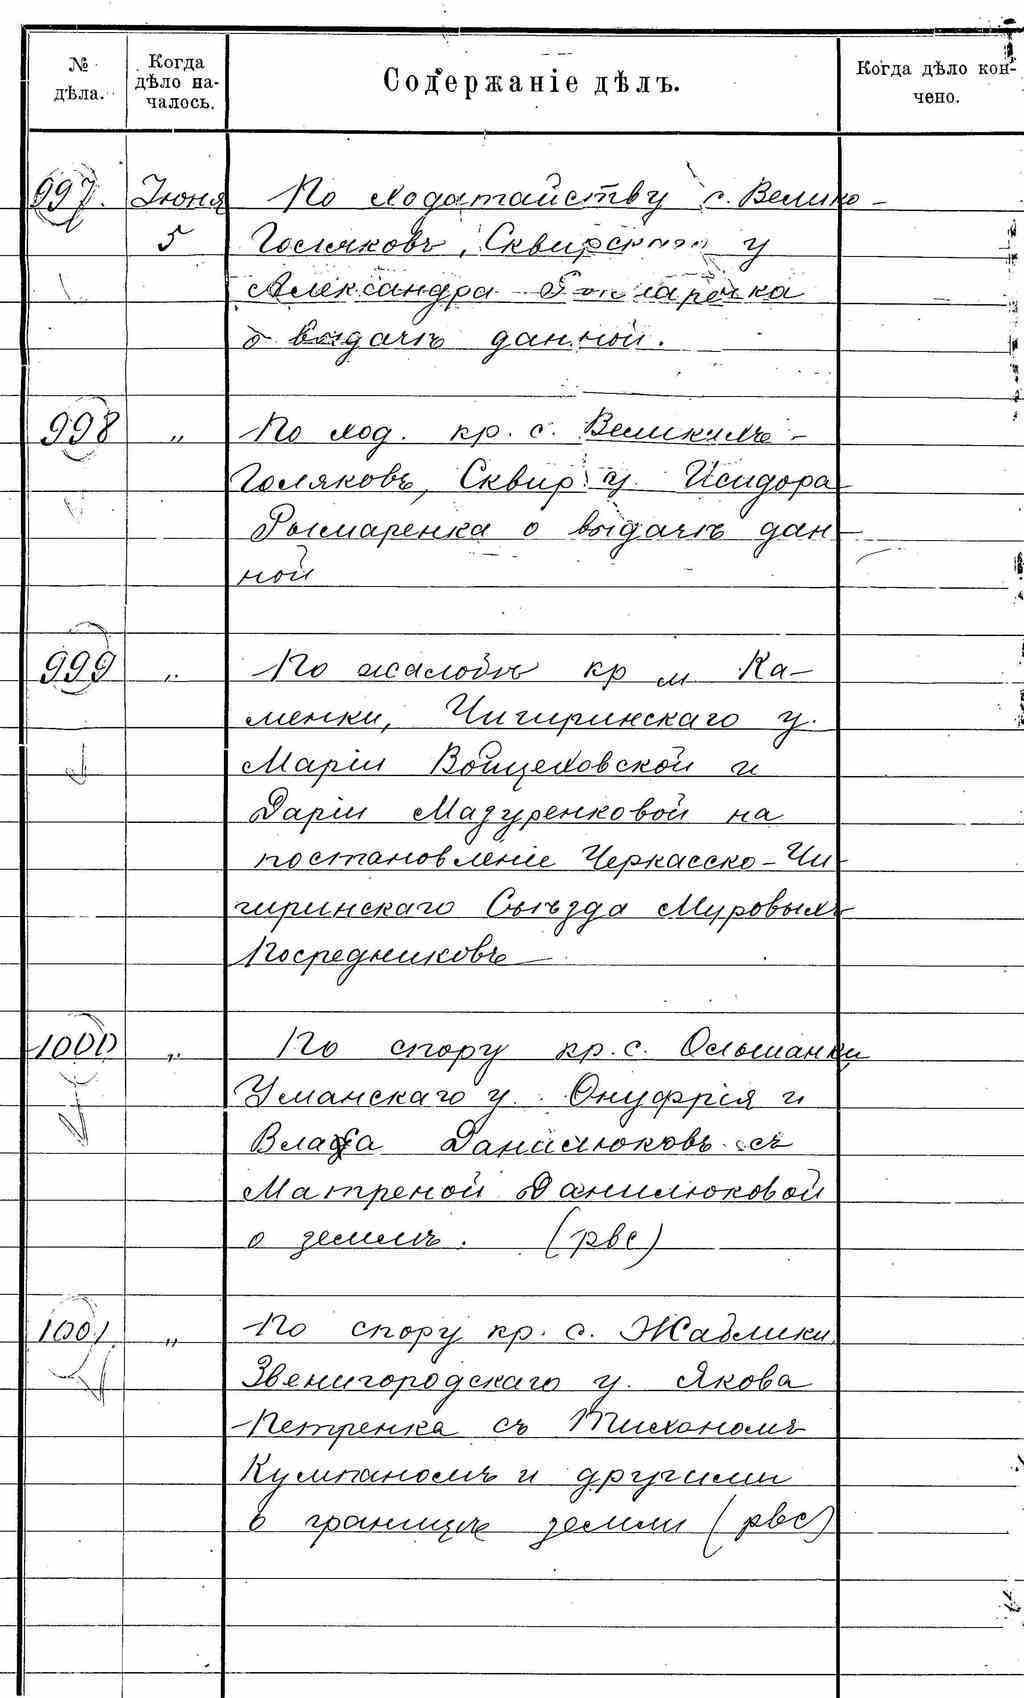 № дѣла.
Когда дѣло началось.
Содержаніе дѣлъ.
Когда дѣло кончено.
997. Іюня 5
По ходатайству с. Велико-
Голяковъ, Сквирскаго у
Александра
о выдачѣ данной.
998 „
По ход. кр. с. Великихъ-
Голяковъ, Сквир у. Исидора
Рымаренка о выдачѣ дан-
ной
999 „
По жалобѣ кр м Ка-
менки, Чигиринскаго у.
Маріи Войцеховской и
Даріи Мазуренковой на
постановленіе Черкасско-Чи-
гиринскаго Съѣзда Мировыхъ
Посредниковъ
1000 „
По спору кр. с. Ольшанки
Уманскаго у. Онуфрія и
Власа Данилюковъ съ
Матреной Данилюковой
о землѣ. (рвс)
1001 „
По спору кр. с. Жаблики,
Звенигородскаго у. Якова
Петренка съ Тихономъ
Кумпаномъ и другими
о границѣ земли (рвс)